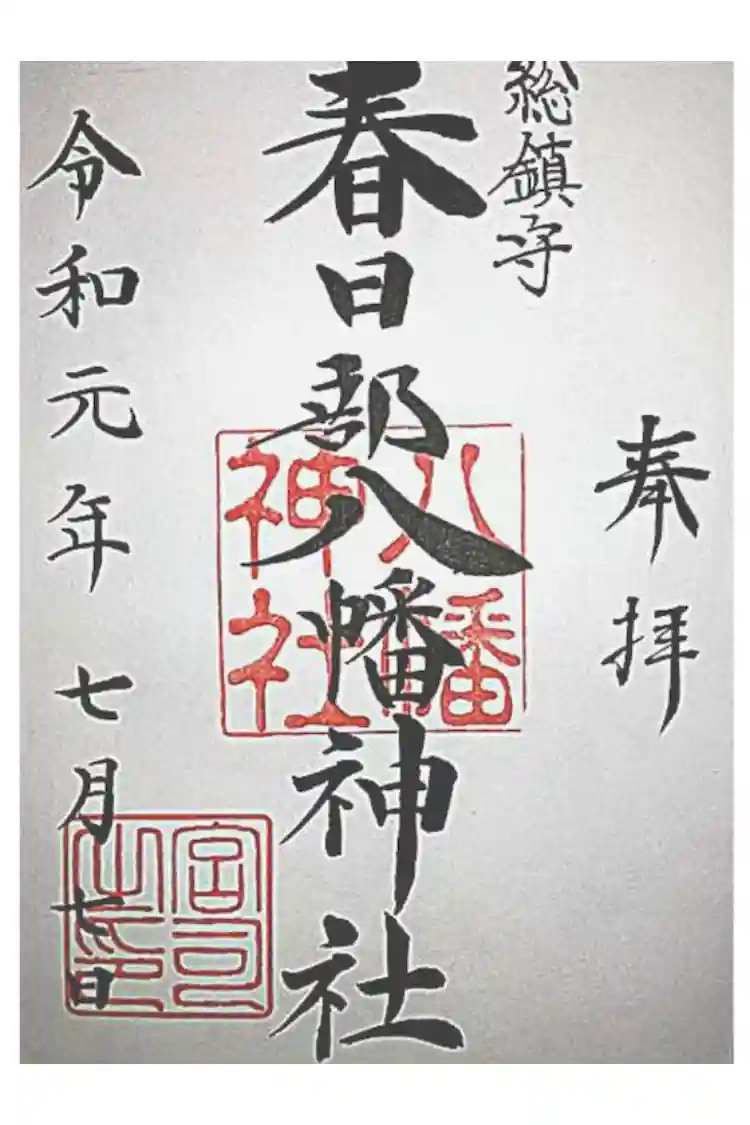 奉拝
総鎮守
春日部八幡神社
八幡
神社
宮司
之印
令和元年七月七日